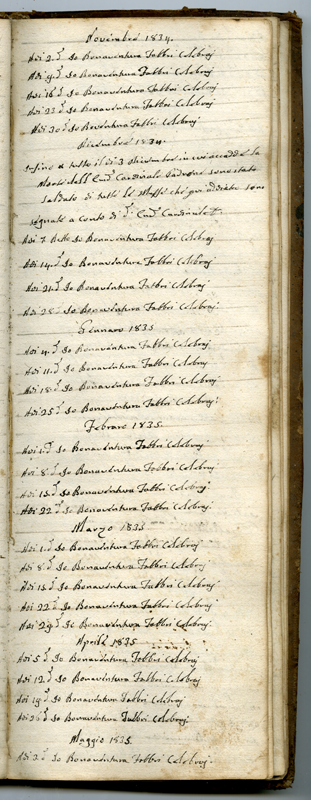 Novembre 1834.
Adi 2. d.º Io Bonaventura Fabbri Celebraj
Adi 9. d.º Io Bonaventura Fabbri Celebraj
Adi 16 d.º Io Bonaventura Fabbri Celebraj
Adi 23 d.º Io Bonaventura Fabbri Celebraj
Adi 30 d.º Io Bonventura Fabbri Celebraj
Dicembre 1834.
tutto il di 3 Dicembre in cui accadde la
Morte dell' Em.º Cardinale Padrone sono stato
saldato di tutte le Messe che qui addietro sono
segnate a conto di d.º Em.º Cardinale
Adi 7. Io Bonaventura Fabbri Celebraj
Adi 14. d.º Io Bonaventura Fabbri Celebraj
Adi 21. d.º Io Bonaventura Fabbri Celebraj
Adi 28 d.º Io Bonaventura Fabbri Celebraj.
Gennaro 1835
Adi 4. d.º Io Bonaventura Fabbri Celebraj
Adi 11. d.º Io Bonaventura Fabbri Celebraj
Adi 18 d.º Io Bonaventura Fabbri Celebraj
Adi 25 d.º Io Bonaventura Fabbri Celebraj.
Febraro 1835.
Adi 1. d.º Io Bonaventura Fabbri Celebraj
Adi 8. d.º Io Bonaventura Fabbri Celebraj
Adi 15 d.º Io Bonaventura Fabbri Celebraj
Adi 22 d.º Io Bonaventura Fabbri Celebraj
Marzo 1835
Adi 1. d.º Io Bonaventura Fabbri Celebraj
Adi 8 d.º Io Bonaventura Fabbri Celebraj
Adi 15 d.º Io Bonaventura Fabbri Celebraj
Adi 22 d.º Io Bonaventura Fabbri Celebraj
Adi 29 d.º Io Bonaventura Fabbri Celebraj.
Aprile 1835
Adi 5 d.º Io Bonaventura Fabbri Celebraj
Adi 12 d.º Io Bonaventura Fabbri Celebraj
Adi 19 d.º Io Bonaventura Fabbri Celebraj
Adi 26 d.º Io Bonaventura Fabbri Celebraj
Maggio 1835.
Adi 3 d.º Io Bonaventura Fabbri Celebraj.